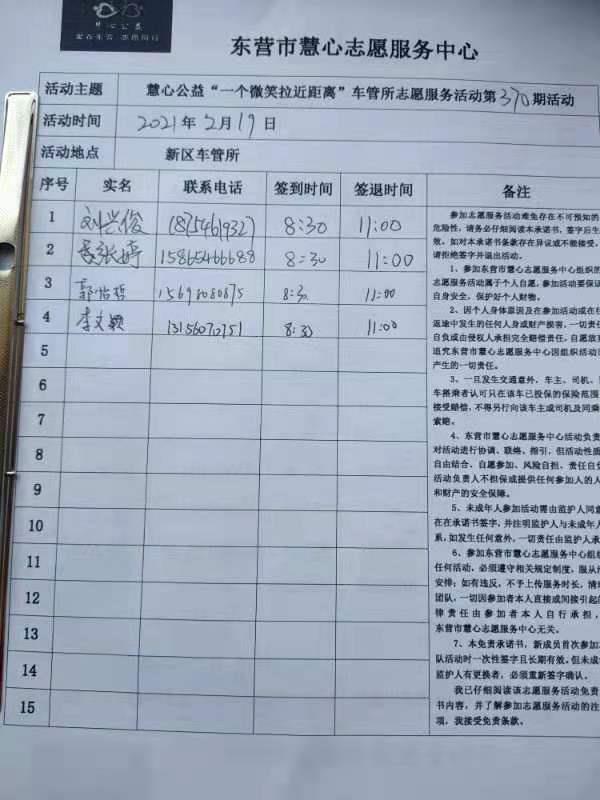 慧心公益
爱在东营 惠傳同行
东营市慧心志愿服务中心
活动主题 慧心公益“一个微笑拉近距离”车管所志愿服务活动第370期活动
活动时间 2021年2月19日
活动地点 新区车管所
序号 实名 联系电话 签到时间 签退时间 备注
1 刘兴俊 18754619327 8:30 11:00
2 张婷 15865466688 8:30 11:00
3 郭怡哲 15698080875 8:30 11:00
4 李文颖 13156072751 8:30 11:00
5
6
7
8
9
10
11
12
13
14
15
参加志愿服务活动难免存在不可预知的
危险性，请务必仔细阅读本承诺书，签字后生
效。如对本承诺书条款存在异议或不能接受，
请拒绝签字并退出活动。
1、参加东营市慧心志愿服务中心组织的
志愿服务活动属于个人自愿，参加活动要保证
自身安全，保护好个人财物。
2、因个人身体原因及在参加活动或在往
返途中发生的任何人身或财产损害，一切责任
自负或由侵权人承担完全赔偿责任，自愿放弃
追究东营市慧心志愿服务中心因组织活动
产生的一切责任。
3、一旦发生交通意外，车主、司机、
车搭乘者认可只在该车已投保的保险范围
接受赔偿，不得另行向该车主或司机及同乘
索赔。
4、东营市慧心志愿服务中心活动负责
对活动进行协调、联络、指引，但活动性质
自由结合、自愿参加、风险自担、责任自负
活动负责人不担保或提供任何参加人的人
和财产的安全保障。
5、未成年人参加活动需由监护人同意
在在承诺书签字，并注明监护人与未成年人
系，如发生任何意外，一切责任由监护人承
6、参加东营市慧心志愿服务中心组织
任何活动，必须遵守相关规定制度，服从
安排；如有违反，不予上传服务时长，清
团队，一切因参加者本人直接或间接引起的
律责任由参加者本人自行承担，
东营市慧心志愿服务中心无关。
7、本免责承诺书，新成员首次参加
队活动时一次性签字且长期有效。但未成
监护人有更换者，必须重新签字确认。
我已仔细阅读该志愿服务活动免责
书内容，并了解参加志愿服务活动的注
项，我接受免责条款。